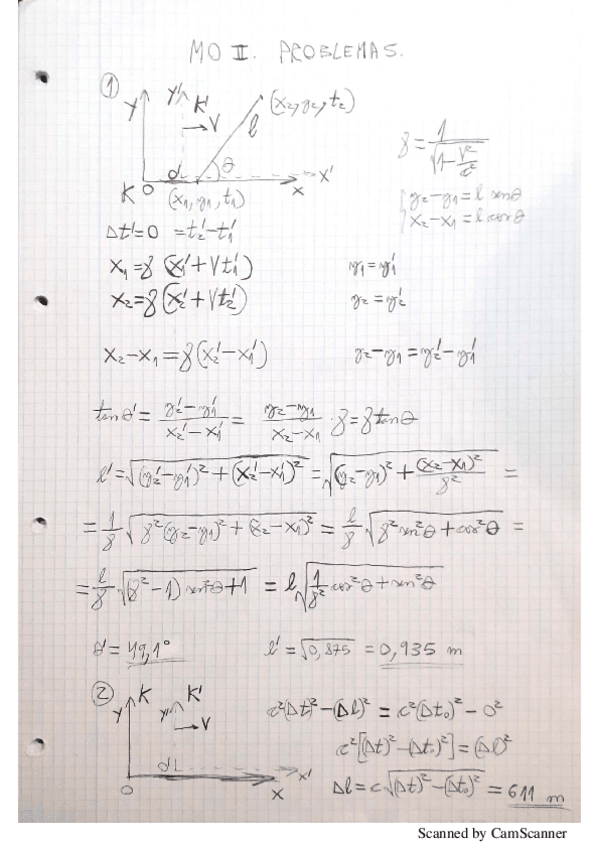 MO II. PROBLEMAS.
①
Y Y' K' (x₂,y₂,t₂)
→V l
d θ → x'
K O (x₁,y₁,t₁) x
γ = 1/√(1-V²/c²)
y₂-y₁ = l senθ
x₂-x₁ = l cosθ
Δt'=0 = t₂'-t₁'
x₁=γ(x₁'+Vt₁') y₁=y₁'
x₂=γ(x₂'+Vt₂') y₂=y₂'
x₂-x₁=γ(x₂'-x₁') y₂-y₁=y₂'-y₁'
tanθ' = (y₂'-y₁')/(x₂'-x₁') = (y₂-y₁)/(x₂-x₁) ·γ = γtanθ
l' = √((y₂'-y₁')²+(x₂'-x₁')²) = √((y₂-y₁)²+(x₂-x₁)²/γ²) =
= 1/γ √(γ²(y₂-y₁)²+(x₂-x₁)²) = l/γ √(γ²sen²θ+cos²θ) =
= l/γ √((γ²-1)sen²θ+1) = l√(1/γ² cos²θ+sen²θ)
θ' = 49,1° l' = √0,875 = 0,935 m
②
K K'
Y Y' →V
d → x'
O x
c²(Δt)²-(Δl)² = c²(Δt₀)²-0²
c²[(Δt)²-(Δt₀)²] = (Δl)²
Δl = c√((Δt)²-(Δt₀)²) = 611 m
Scanned by CamScanner